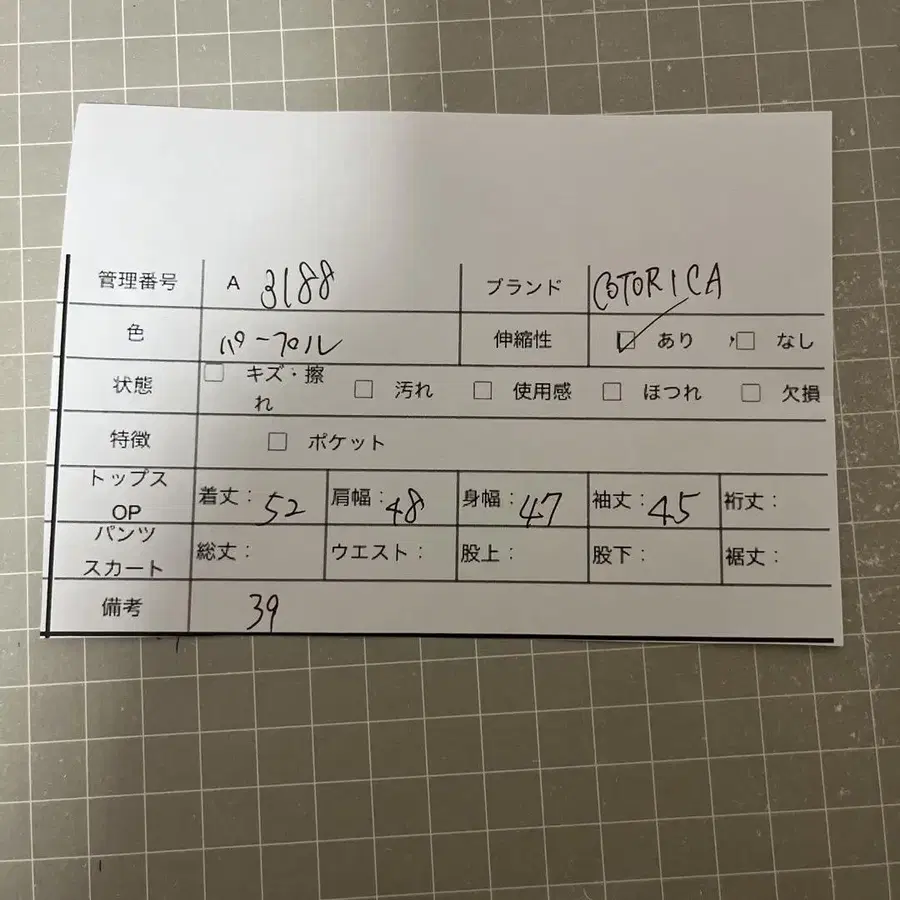 管理番号 A 3188 ブランド COTORICA
色 パープル 伸縮性 ☑ あり ☐ なし
状態 ☐ キズ・擦れ ☐ 汚れ ☐ 使用感 ☐ ほつれ ☐ 欠損
特徴 ☐ ポケット
トップス OP 着丈： 52 肩幅： 48 身幅： 47 袖丈： 45 裄丈：
パンツ スカート 総丈： ウエスト： 股上： 股下： 裾丈：
備考 39